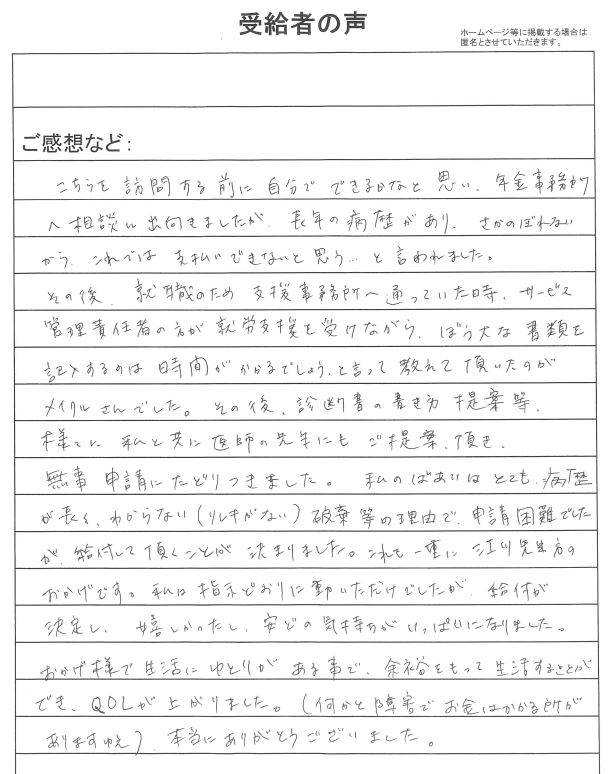 受給者の声
ホームページ等に掲載する場合は
匿名とさせていただきます。
ご感想など:
こちらを訪問する前に自分でできるかなと思い、年金事務所
へ相談に出向きましたが、長年の病歴があり、さかのぼれない
から、これでは支払いできないと思う…と言われました。
その後、就職のため支援事務所へ通っていた時、サービス
管理責任者の方が就労支援を受けながら、ぼう大な書類を
記入するのは時間がかかるでしょう、と言って教えて頂いたのが
メイクルさんでした。その後、診断書の書き方提案等、
様々に私と共に医師の先生にもご提案、頂き、
無事申請にたどりつきました。私のばあいはとても、病歴
が長く、わからない(リレキがない)破棄等の理由で、申請困難でした
が、給付して頂くことが決まりました。これも一重に江川先生方の
おかげです。私は指示どおりに動いただけでしたが、給付が
決定し、嬉しかったし、安どの気持ちがいっぱいになりました。
おかげ様で生活にゆとりがある事で、余裕をもって生活することが
でき、QOLが上がりました。(何かと障害でお金はかかる所が
ありますゆえ)、本当にありがとうございました。